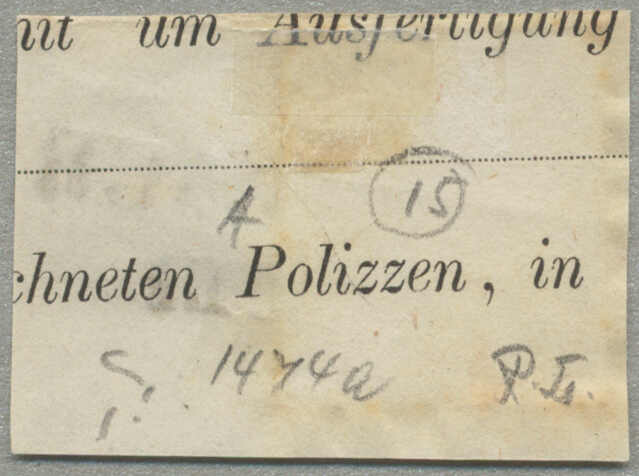 nit um Ausfertigung
A 15
chneten Polizzen, in
1474a P. Is.